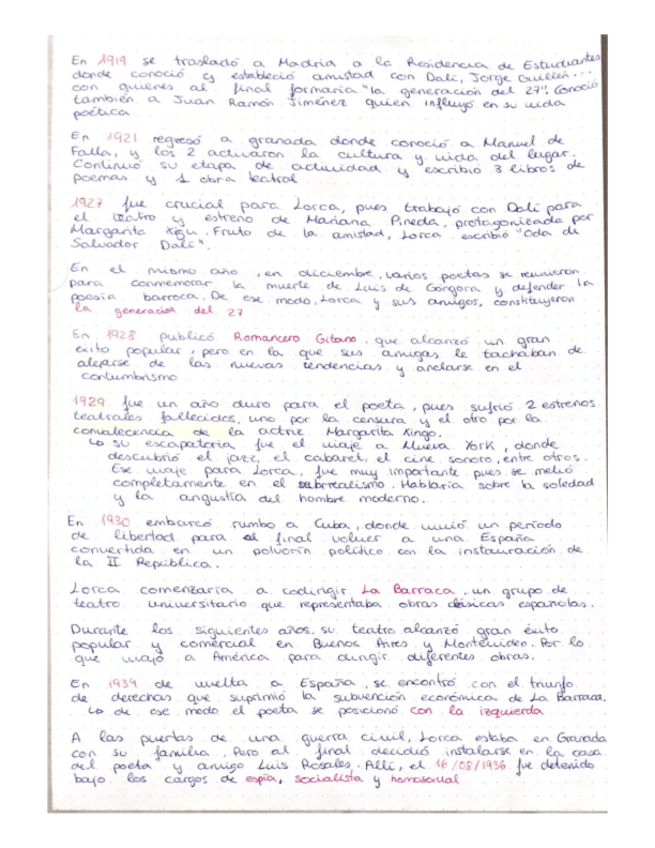 En 1919 se trasladó a Madrid a la Residencia de Estudiantes
donde conoció y estableció amistad con Dalí, Jorge Guillén...
con quienes al final formaría "la generación del 27". Conoció
también a Juan Ramón Jiménez quien influyó en su vida
poética
En 1921 regresó a granada donde conoció a Manuel de
Falla, y los 2 activaron la cultura y vida del lugar.
Continuó su etapa de actividad y escribió 3 libros de
poemas y 1 obra teatral
1927 fue crucial para Lorca, pues trabajó con Dalí para
el teatro y estreno de Mariana Pineda, protagonizada por
Margarita Xigu. Fruto de la amistad, Lorca escribió "Oda de
Salvador Dalí".
En el mismo año, en diciembre, varios poetas se reunieron
para conmemorar la muerte de Luis de Góngora y defender la
poesía barroca. De ese modo, Lorca y sus amigos, constituyeron
la generación del 27
En 1928 publicó Romancero Gitano, que alcanzó un gran
éxito popular, pero en la que sus amigos le tachaban de
alejarse de las nuevas tendencias y anclarse en el
contumbrismo
1929 fue un año duro para el poeta, pues sufrió 2 estrenos
teatrales fallecidos, uno por la censura y el otro por la
convalecencia de la actriz Margarita Xingo.
↳ su escapatoria fue el viaje a Nueva York, donde
descubrió el jazz, el cabaret, el cine sonoro, entre otros.
Ese viaje para Lorca, fue muy importante pues se metió
completamente en el subrrealismo. Hablaría sobre la soledad
y la angustia del hombre moderno.
En 1930 embarcó rumbo a Cuba, donde vivió un período
de libertad para al final volver a una España
convertida en un polvorín político con la instauración de
la II República.
Lorca comenzaría a codirigir La Barraca, un grupo de
teatro universitario que representaba obras clásicas españolas.
Durante los siguientes años, su teatro alcanzó gran éxito
popular y comercial en Buenos Aires y Montevideo. Por lo
que viajó a América para dirigir diferentes obras.
En 1934 de vuelta a España, se encontró con el triunfo
de derechas que suprimió la subvención económica de La Barraca.
↳ de ese modo el poeta se posicionó con la izquierda
A las puertas de una guerra civil, Lorca estaba en Granada
con su familia. Pero al final decidió instalarse en la casa
del poeta y amigo Luis Rosales. Allí, el 16/08/1936 fue detenido
bajo los cargos de espía, socialista y homosexual